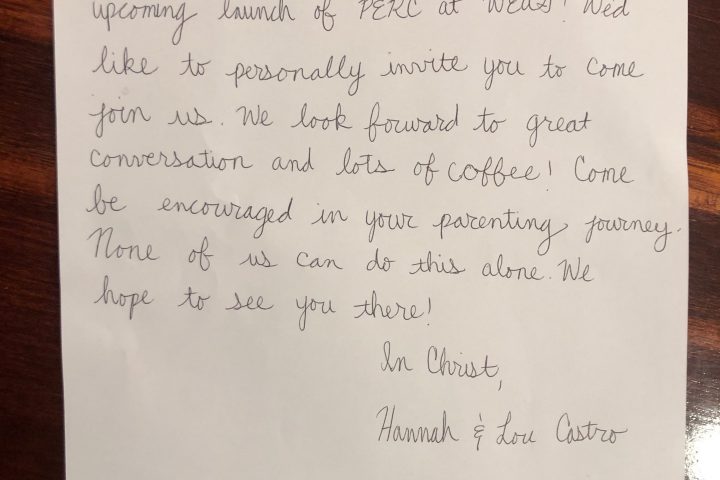 upcoming launch of PERC at ! We'd
like to personally invite you to come
join us. We look forward to great
conversation and lots of coffee! Come
be encouraged in your parenting journey.
None of us can do this alone. We
hope to see you there!
In Christ,
Hannah & Lou Castro